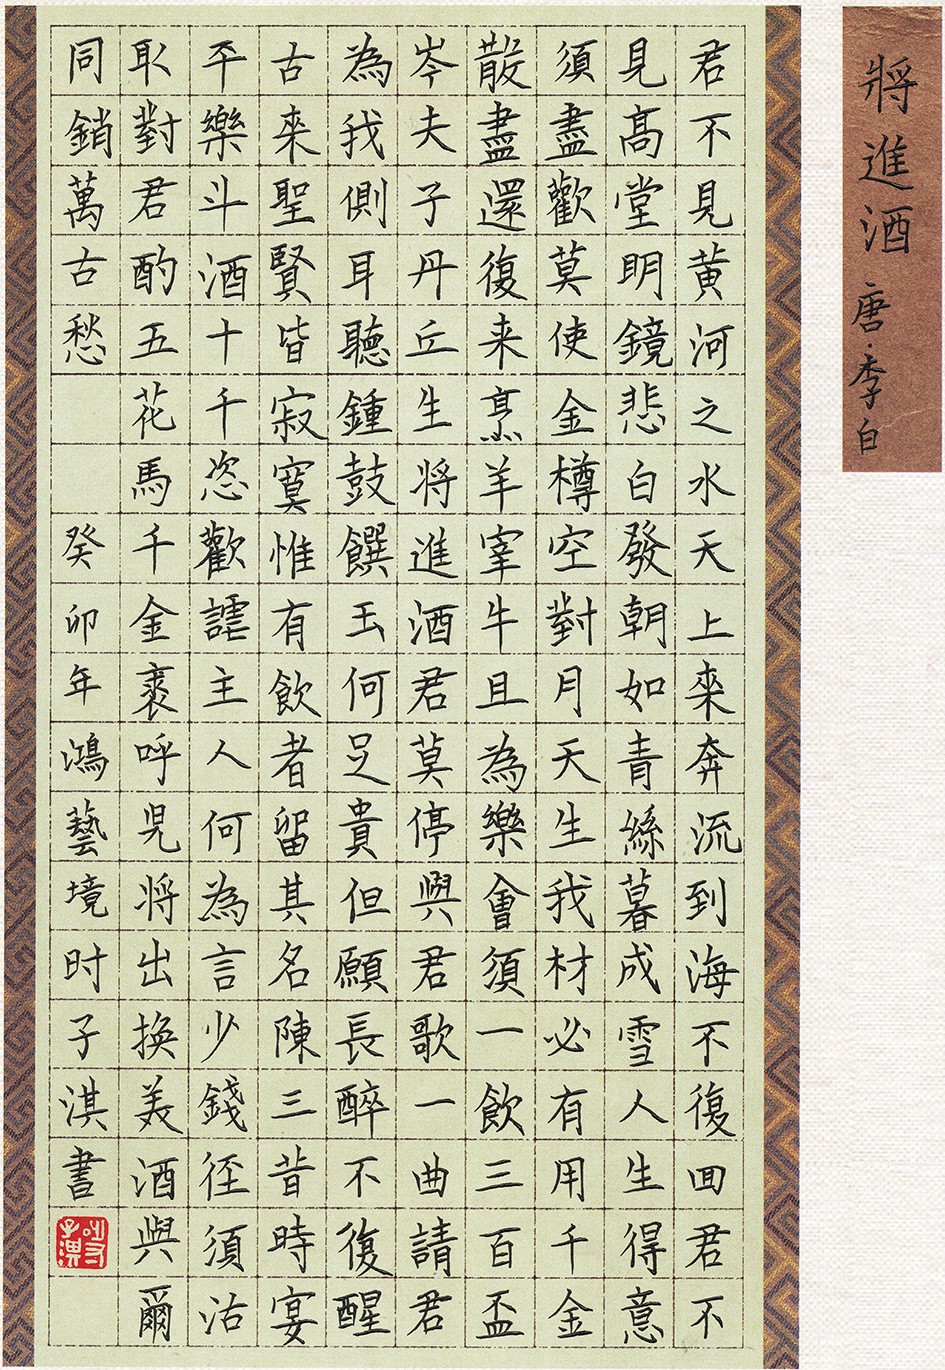 將進酒 唐·李白
君不見黄河之水天上來奔流到海不復囬君不
見高堂明鏡悲白發朝如青絲暮成雪人生得意
須盡歡莫使金樽空對月天生我材必有用千金
散盡還復来烹羊宰牛且為樂會須一飲三百盃
岑夫子丹丘生將進酒君莫停與君歌一曲請君
為我側耳聽鍾鼓饌玉何足貴但願長醉不復醒
古來聖賢皆寂寞惟有飲者留其名陳三昔時宴
平樂斗酒十千恣歡謔主人何為言少錢徑須沽
取對君酌五花馬千金裘呼兒將出換美酒與爾
同銷萬古愁 癸卯年鴻藝境时子淇書
时子淇